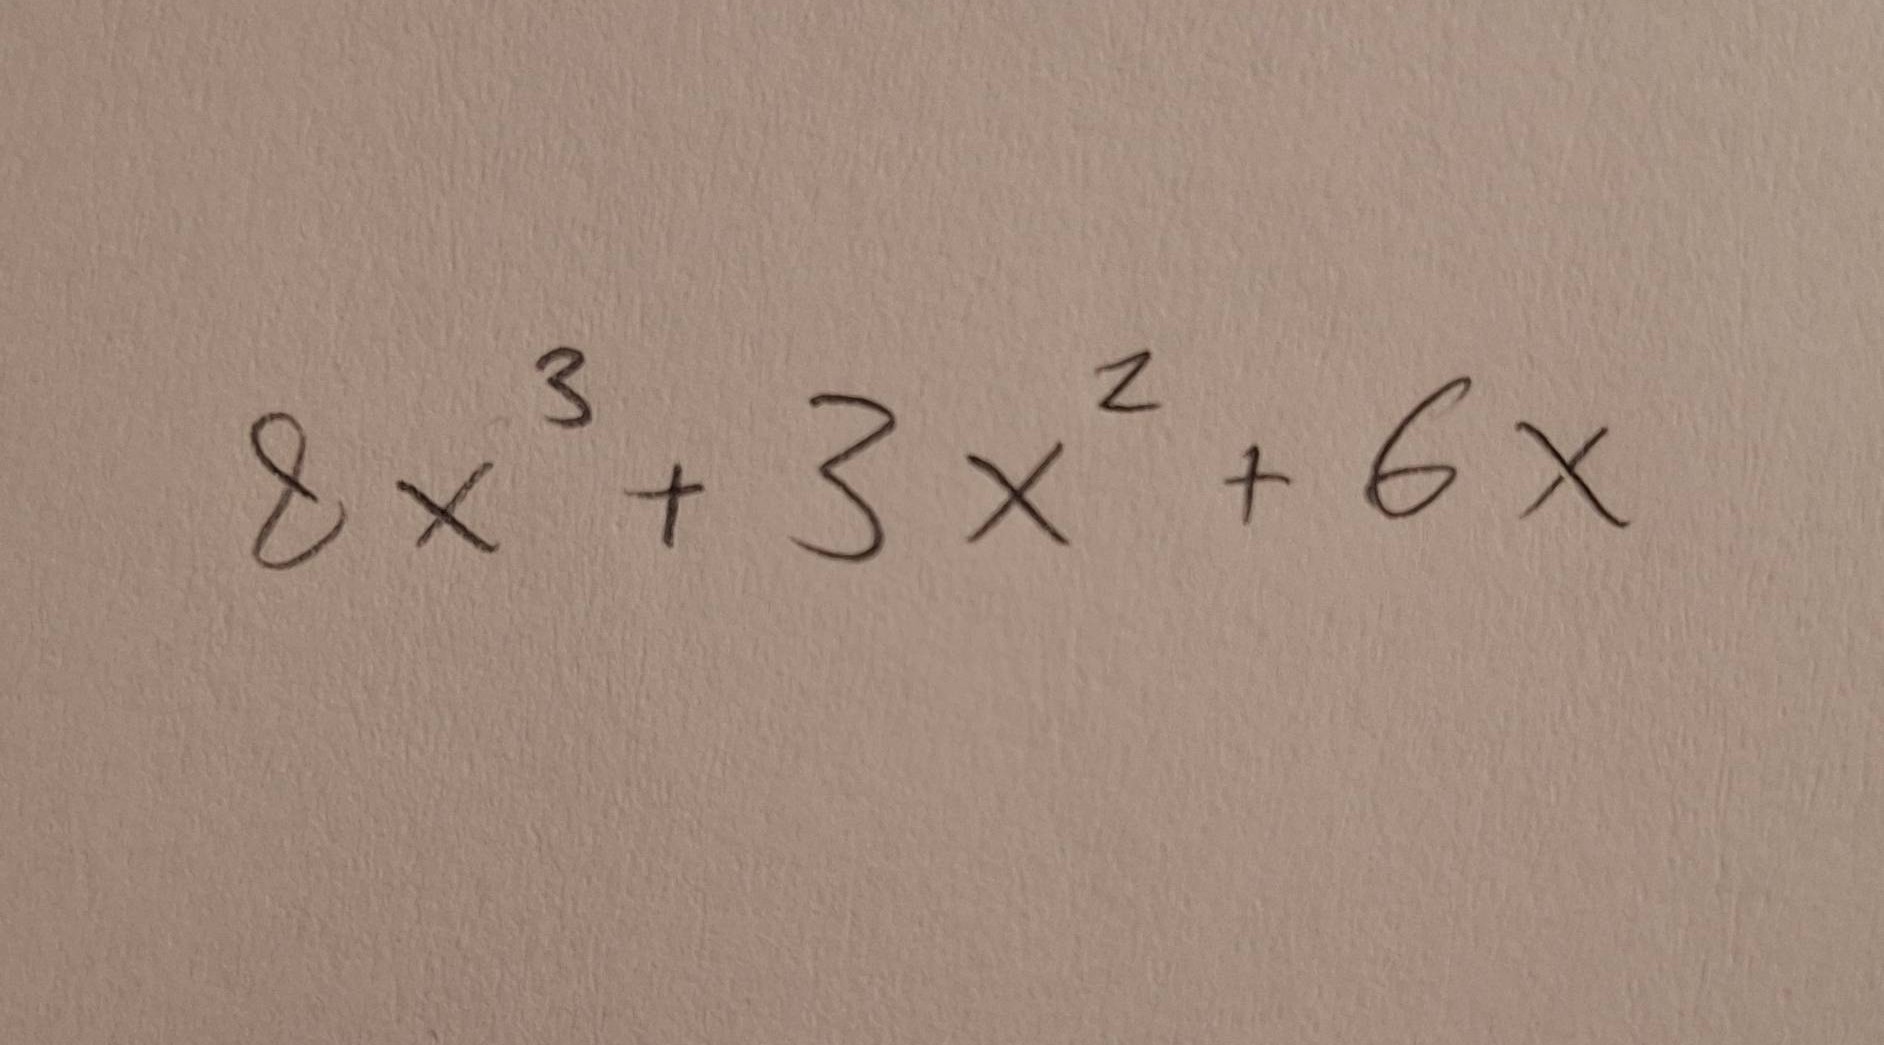 8x³ + 3x² + 6x